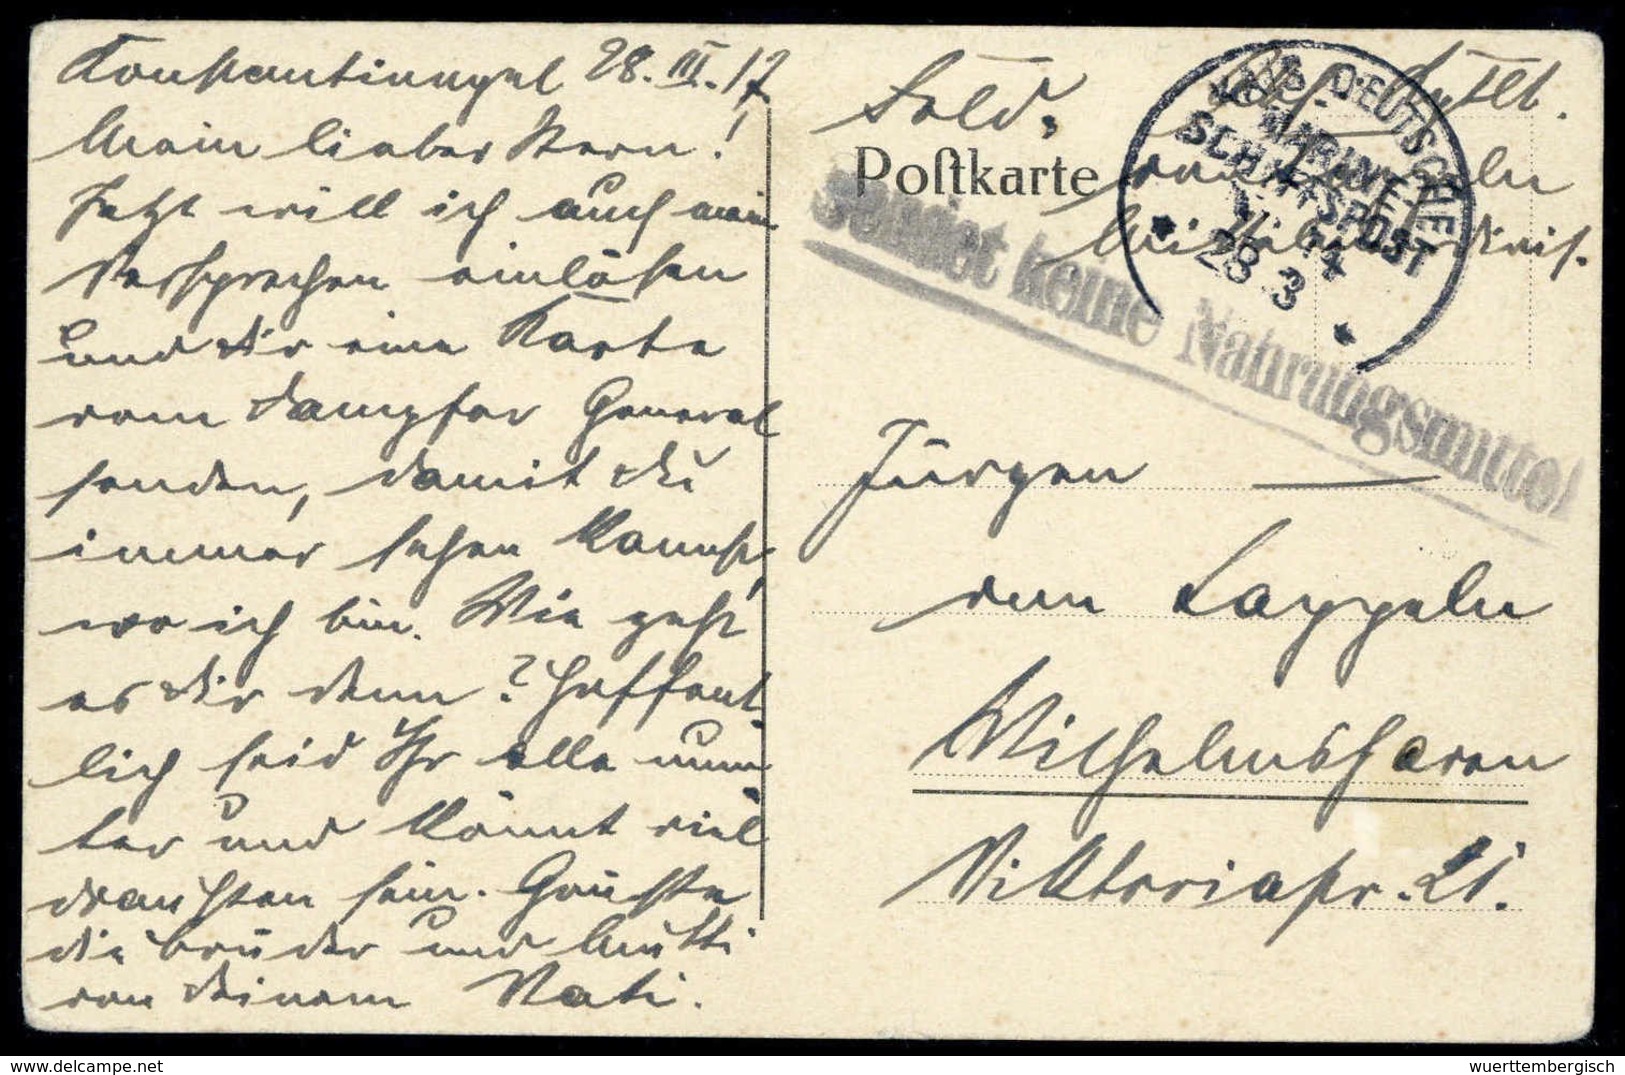 Konstantinopel 28. III. 17.
Mein lieber Stern!
Jetzt will ich auch mein
Versprechen einlösen
und dir eine Karte
vom Dampfer General
senden, damit du
immer sehen kannst,
wo ich bin. Wie geht
es dir denn? Hoffent-
lich seid Ihr alle mun
ter und könnt viel
draußen sein. Grüße
die Brüder und Mutti
von deinem Vati.
Feld.
Postkarte
KAIS. DEUTSCHE
MARINE-
SCHIFFSPOST
28 3
Sendet keine Nahrungsmittel
Jürgen
von Cappeln
Wilhelmshaven
Viktoriastr. 21.
wuerttembergisch